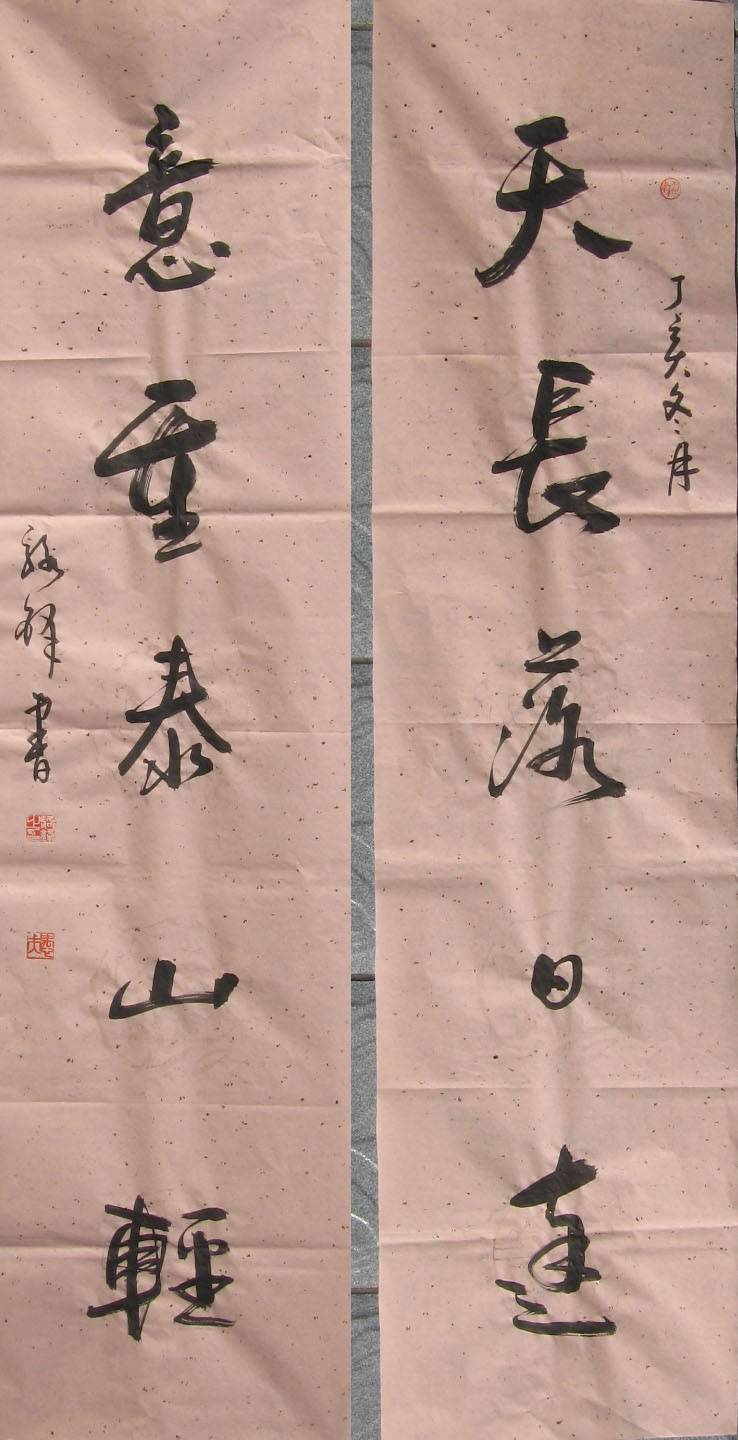 丁亥冬月
天長落日遠
意重泰山輕
書